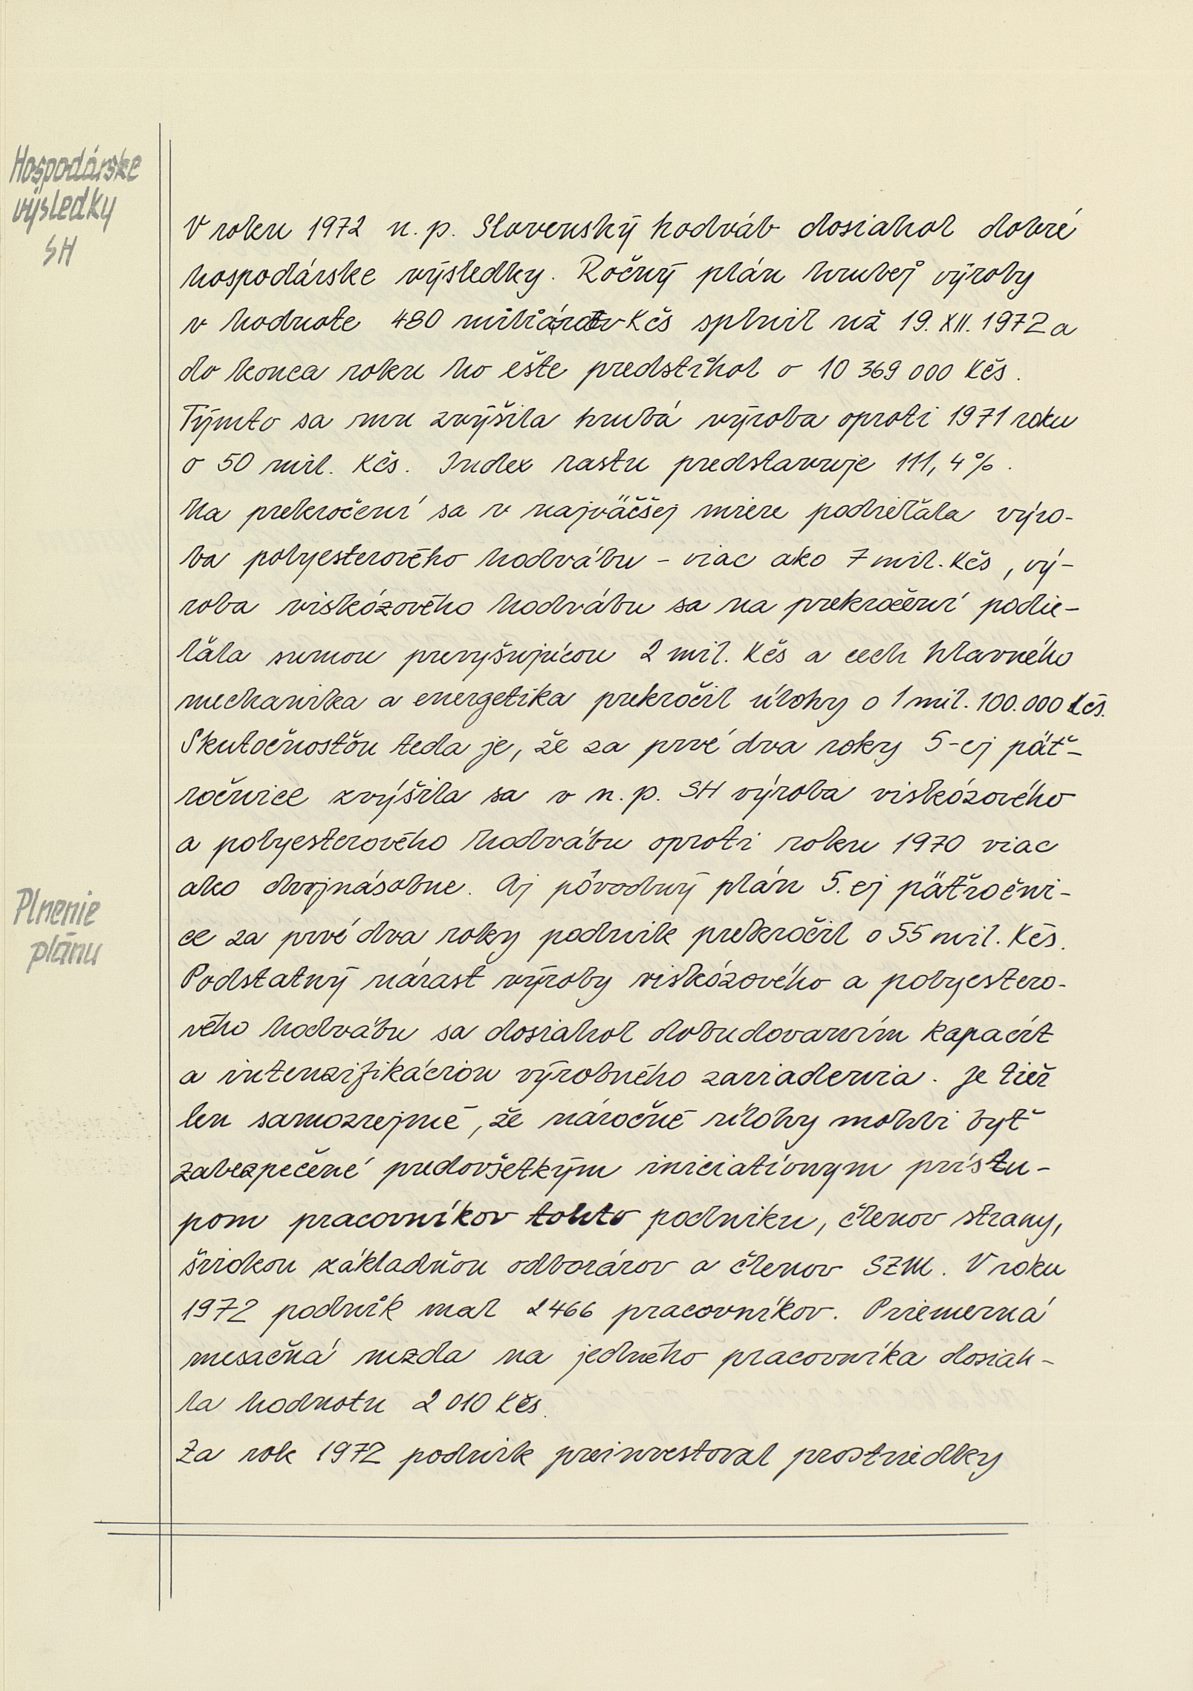 Hospodárske
výsledky
SH
V roku 1972 n. p. Slovenský hodváb dosiahol dobré
hospodárske výsledky. Ročný plán hrubej výroby
v hodnote 480 miliárdov Kčs splnil už 19. XII. 1972 a
do konca roku ho ešte predstihol o 10 369 000 Kčs.
Týmto sa mu zvýšila hrubá výroba oproti 1971 roku
o 50 mil. Kčs. Index rastu predstavuje 111,4 %.
Na prekročení sa v najväčšej miere podieľala výro-
ba polyesterového hodvábu - viac ako 7 mil. Kčs, vý-
roba viskózového hodvábu sa na prekročení podie-
ľala sumou prevyšujúcou 2 mil. Kčs a cech hlavného
mechanika a energetika prekročil úlohy o 1 mil. 100.000 Kčs.
Skutočnosťou teda je, že za prvé dva roky 5-ej päť-
ročnice zvýšila sa v n. p. SH výroba viskózového
a polyesterového hodvábu oproti roku 1970 viac
ako dvojnásobne. Aj pôvodný plán 5. ej päťročni-
Plnenie
plánu
ce za prvé dva roky podnik prekročil o 55 mil. Kčs.
Podstatný nárast výroby viskózového a polyestero-
vého hodvábu sa dosiahol dobudovaním kapacít
a intenzifikáciou výrobného zariadenia. Je tiež
len samozrejmé, že náročné úlohy mohli byť
zabezpečené predovšetkým iniciatívnym prístu-
pom pracovníkov tohto podniku, členov strany,
širokou základňou odborárov a členov SZM. V roku
1972 podnik mal 2466 pracovníkov. Priemerná
mesačná mzda na jedného pracovníka dosiah-
la hodnotu 2 010 Kčs.
Za rok 1972 podnik preinvestoval prostriedky